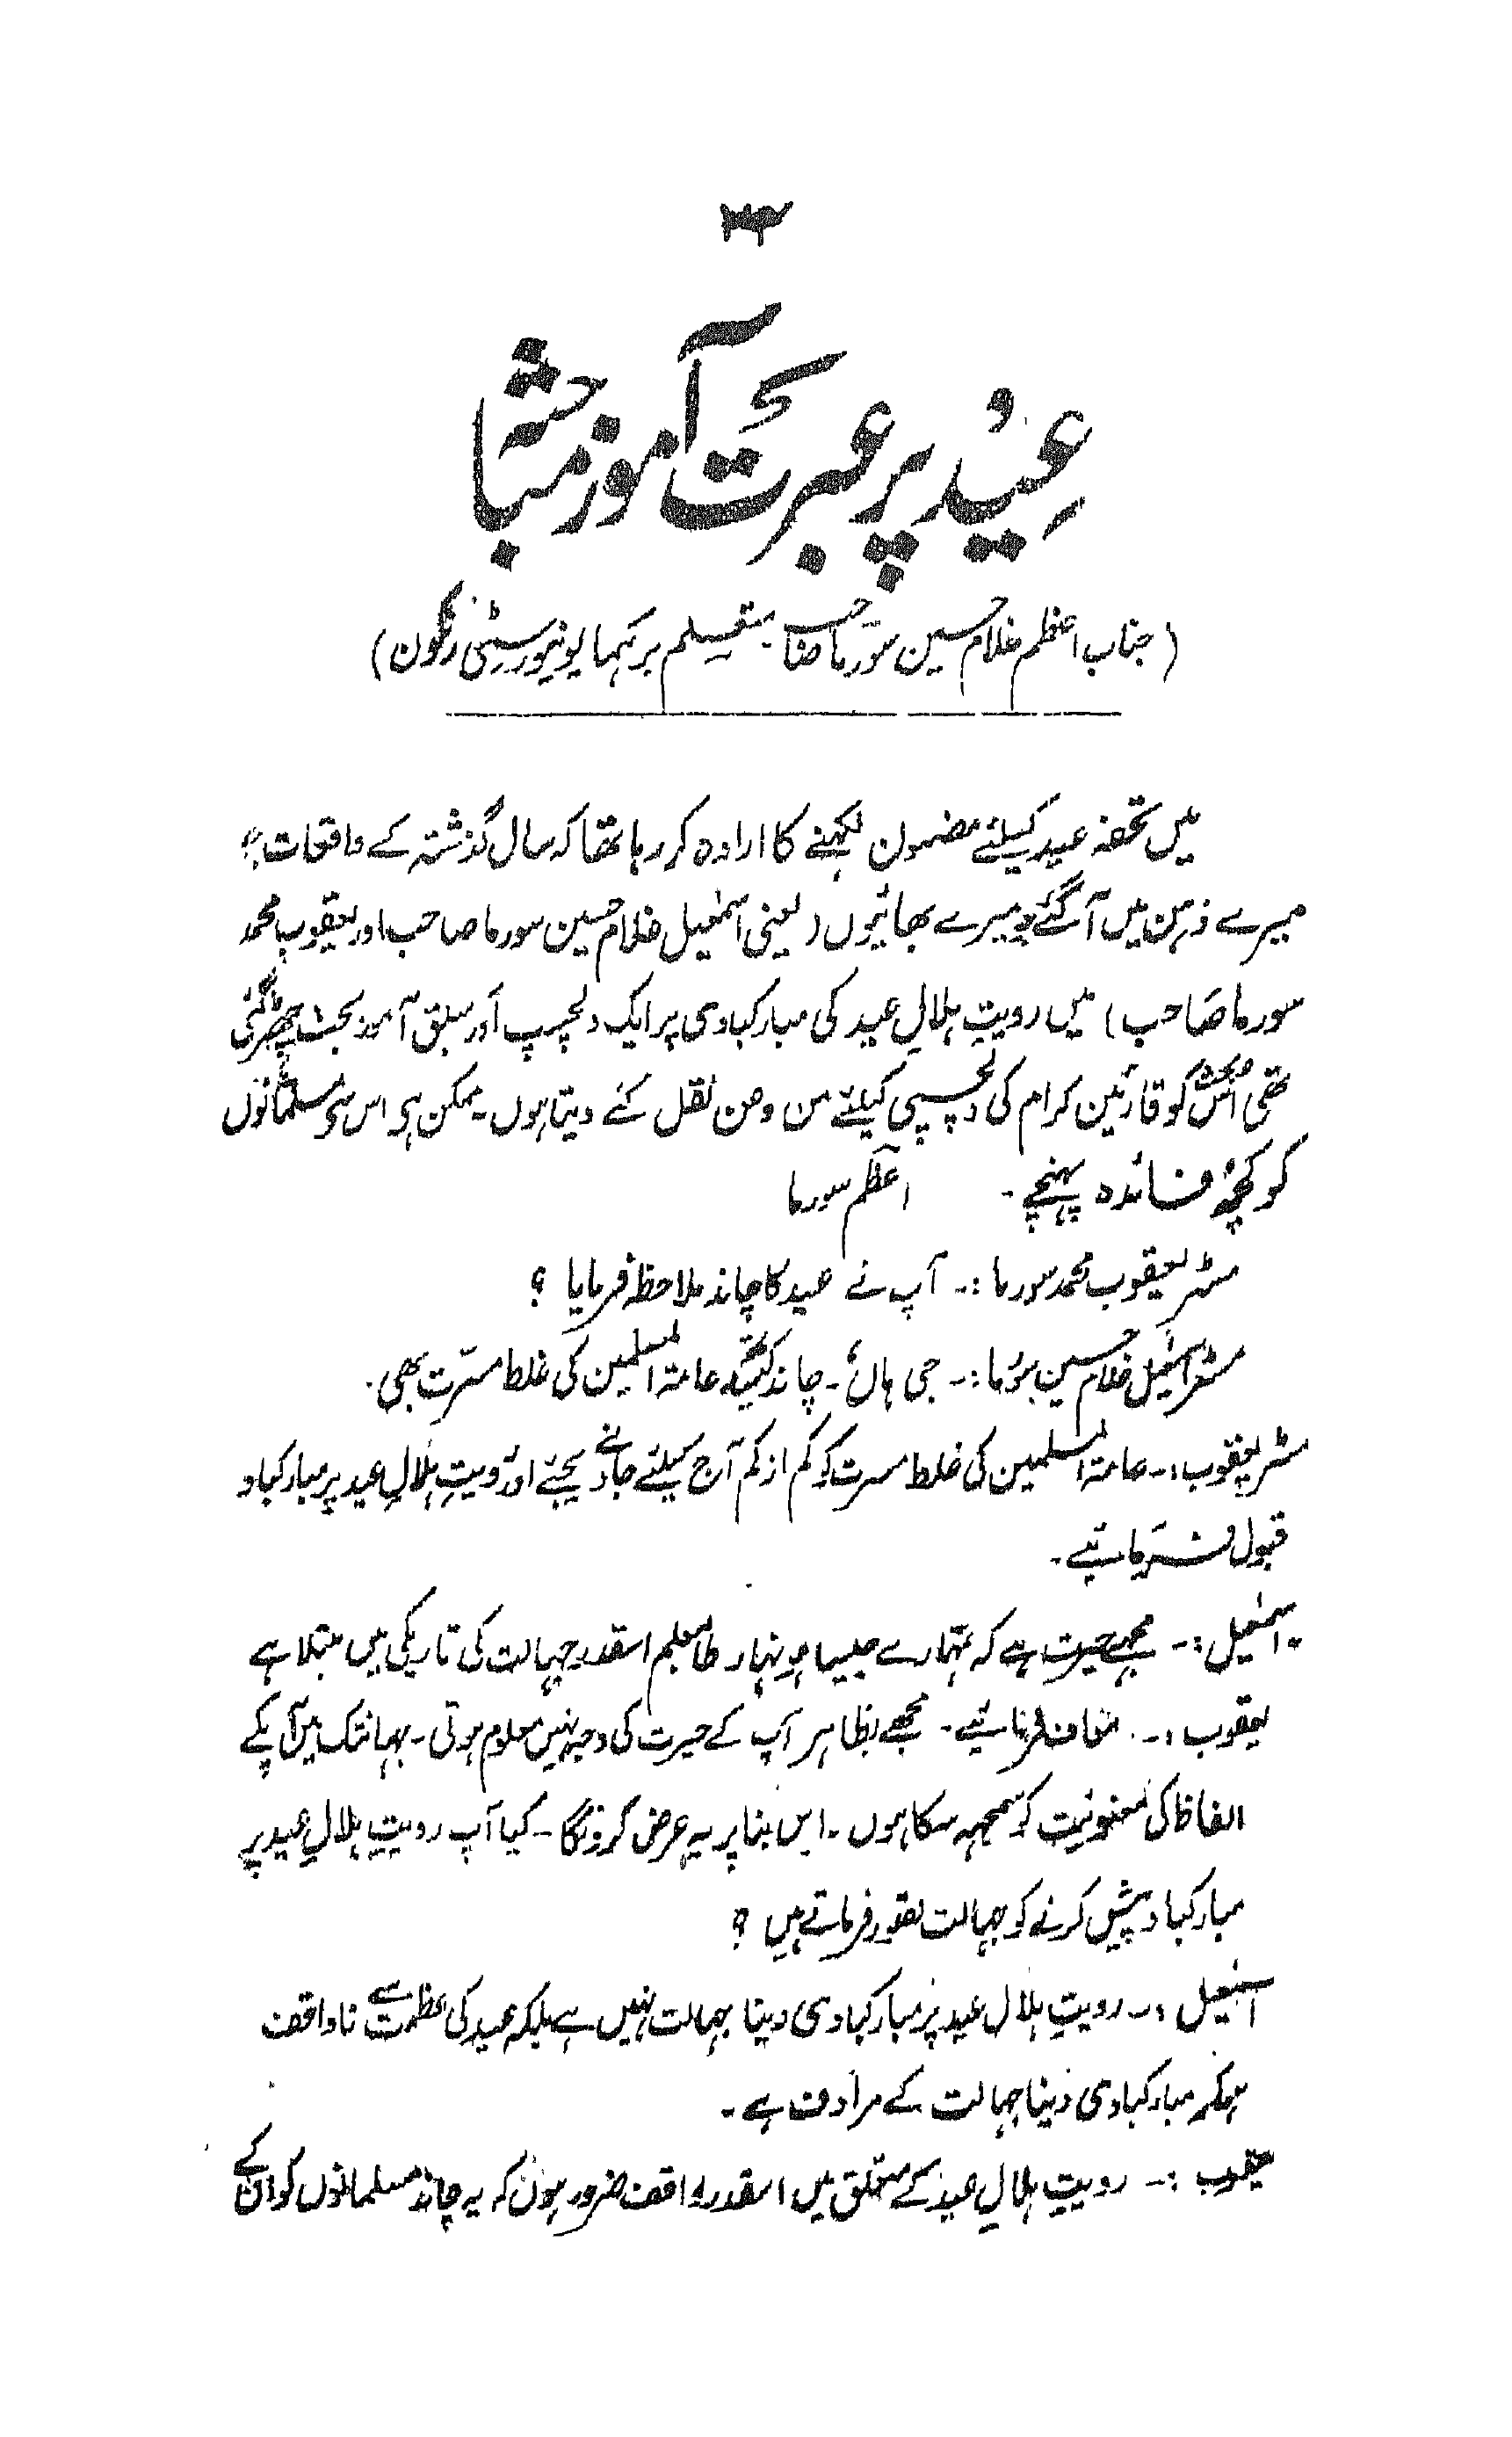 عید پر عبرت آموز مباحثہ
(جناب اعظم غلام حسین سورما صاحب متعلم برہما یونیورسٹی رنگون)
میں تحفۂ عید کیلئے مضمون لکھنے کا ارادہ کر رہا تھا کہ سال گذشتہ کے واقعات
میرے ذہن میں آگئے میرے بھائیوں (یعنی اسمٰعیل غلام حسین سورما صاحب اور یعقوب محمد
سورما صاحب) میں رویتِ ہلالِ عید کی مبارکبادی پر ایک دلچسپ اور سبق آموز بحث چھڑ گئی
تھی اُس بحث کو قارئین کرام کی دلچسپی کیلئے من و عن نقل کئے دیتا ہوں۔ ممکن ہے اس سے مسلمانوں
کو کچھ فائدہ پہنچے۔ اعظم سورما
مسٹر یعقوب محمد سورما :۔ آپ نے عید کا چاند ملاحظہ فرمایا ؟
مسٹر اسمٰعیل غلام حسین سورما :۔ جی ہاں۔ چاند کیساتھ عامۃ المسلمین کی غلط مسرّت بھی۔
مسٹر یعقوب :۔ عامۃ المسلمین کی غلط مسرت کو کم از کم آج کیلئے جانے دیجئے اور رویتِ ہلالِ عید پر مبارکباد
قبول فرمائیے۔
اسمٰعیل :۔ مجھے حیرت ہے کہ تمہارے جیسا ہونہار طالبعلم اسقدر جہالت کی تاریکی میں مبتلا ہے
یعقوب :۔ معاف فرمائیے۔ مجھے بظاہر آپ کے حیرت کی وجہ نہیں معلوم ہوتی۔ جہانتک میں آپکے
الفاظ کی معنونیت کو سمجھ سکا ہوں۔ اس بنا پر یہ عرض کرونگا۔ کیا آپ رویتِ ہلالِ عید پر
مبارکباد پیش کرنے کو جہالت تصور فرماتے ہیں ؟
اسمٰعیل :۔ رویتِ ہلال عید پر مبارکبادی دینا جہالت نہیں ہے بلکہ عید کی عظمت سے ناواقف
ہوکر مبارکبادی دینا جہالت کے مرادف ہے۔
یعقوب :۔ رویتِ ہلالِ عید کے متعلق میں اسقدر واقف ضرور ہوں کہ یہ چاند مسلمانوں کو ان کے